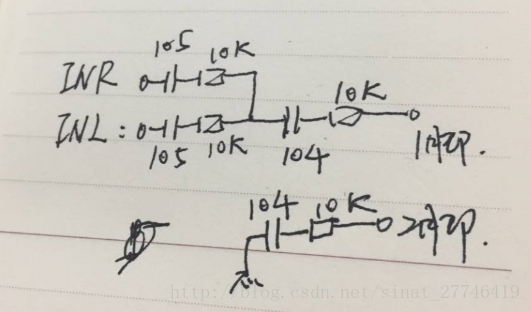 105 10K
INR
10K
INL:
105 10K 104
1脚IP.
104 10K
2脚IP.
http://blog.csdn.net/sinat_27746419